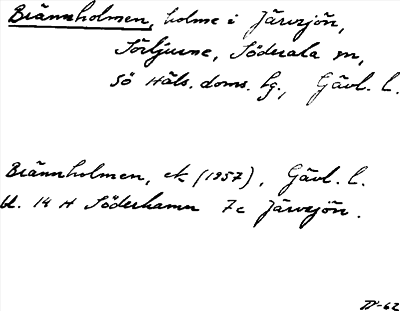 Brännholmen, holme i Järvsjön,
Sörljusne, Söderala sn,
Sö Häls. doms. hg., Gävl. l.
Brännholmen, ek (1957), Gävl. l.
bl. 14 H Söderhamn 7c Järvsjön.
-62